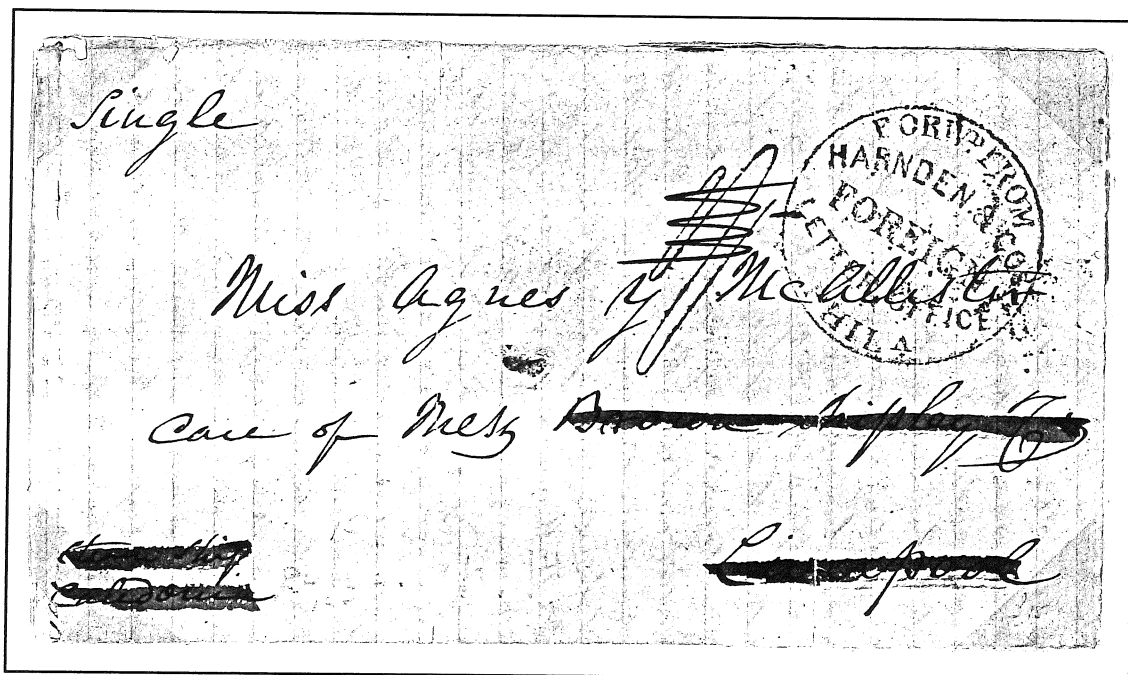 Single
FORWD. FROM
HARNDEN & CO'S
FOREIGN
LETTER OFFICE
PHILA
Miss Agnes Y McAllister
Care of Mess Brown Shipley & Co
Steam Ship
Caledonia
Liverpool